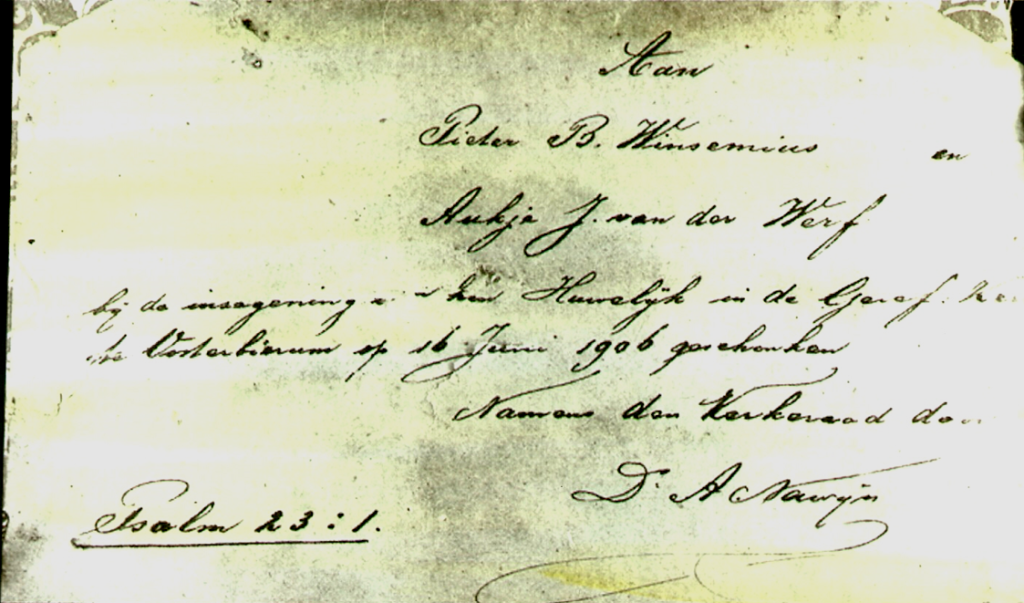 Aan
Pieter B. Winsemius en
Aukje J. van der Werf
bij de inzegening hun Huwelijk in de Geref.
te Oosterbierum op 16 Juni 1906 geschonken
Namens den Kerkeraad door
Ds A Nawijn
Psalm 23:1.